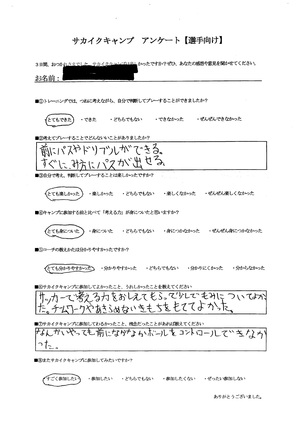 サカイクキャンプ アンケート【選手向け】
3日間、おつかれさまでした。サカイクキャンプは楽しかったですか？ぜひ、あなたの感想や意見を聞かせてください。
お名前：
■①トレーニングでは、つねに考えながら、自分で判断してプレーすることができましたか？
・とてもできた ・できた ・どちらでもない ・できなかった ・ぜんぜんできなかった
■②考えてプレーすることでどんないいことがありましたか？
前にパスやドリブルができる。
すぐに、み方にパスが出せる。
■③自分で考え、判断してプレーすることは楽しかったですか？
・とても楽しかった ・楽しかった ・どちらでもない ・楽しくなかった ・ぜんぜん楽しくなかった
■④キャンプに参加する前と比べて「考える力」が身についたと思いますか？
・とても身についた ・身についた ・どちらでもない ・身につかなかった ・ぜんぜん身につかなかった
■⑤コーチの教えかたは分かりやすかったですか？
・とても分かりやすかった ・分かりやすかった ・どちらでもない ・分かりにくかった ・分からなかった
■⑥サカイクキャンプに参加してよかったこと、うれしかったことを教えてください
サッカーで考える力をおしえてもらって少しでもみについてよか
った。チームワークやあきらめないきもちをもててよかった。
■⑦サカイクキャンプに参加してわるかったこと、残念だったことがあれば教えてください
なんかいやっても前になかなかボールをコントロールできなか
った。
■⑧またサカイクキャンプに参加してみたいですか？
・すごく参加したい ・参加したい ・どちらでもない ・参加したくない ・ぜったい参加しない
ありがとうございました。